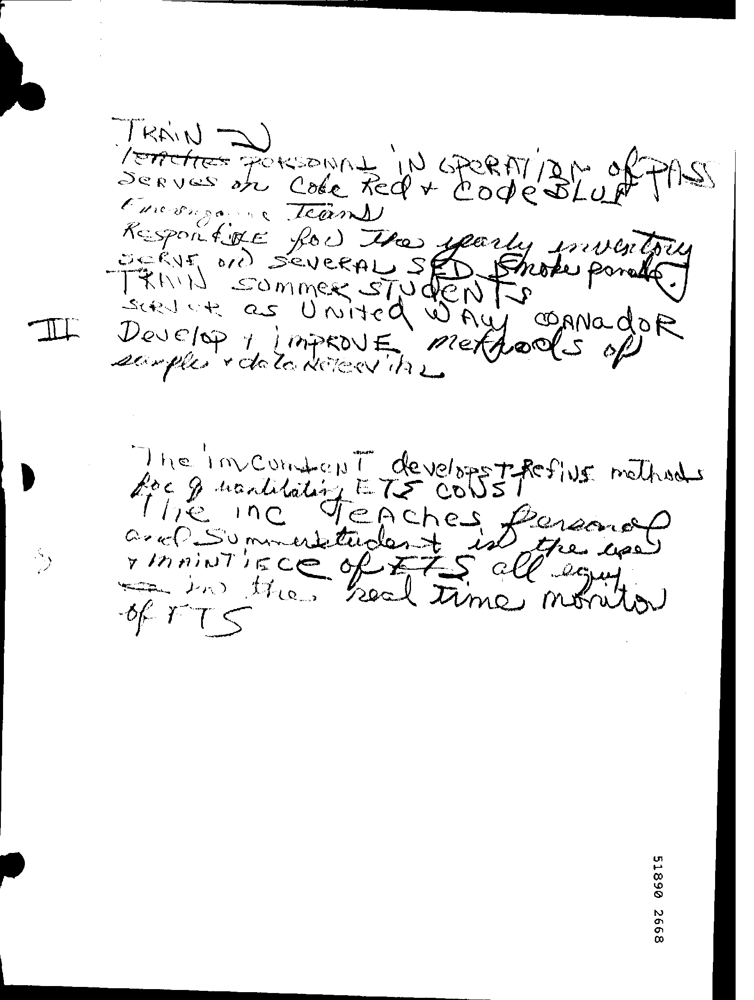 TRAIN
Teaches PERSONAL IN OPERATION of PASS
SERVES on Code Red + CODE BLUE
Teams
for the yearly inventory
SERVE ON SEVERAL SED Smoke panels.
TRAIN SUMMER STUDENTS
as UNITED WAY
III Develop + IMPROVE methods of
sample + data
The develops + Refins methods
for quantitating ETS CONST
The inc TEAChes Personal
and Summerstudent in the use
+ of ETS all equip.
in the real time monitor
of ETS
51890 2668